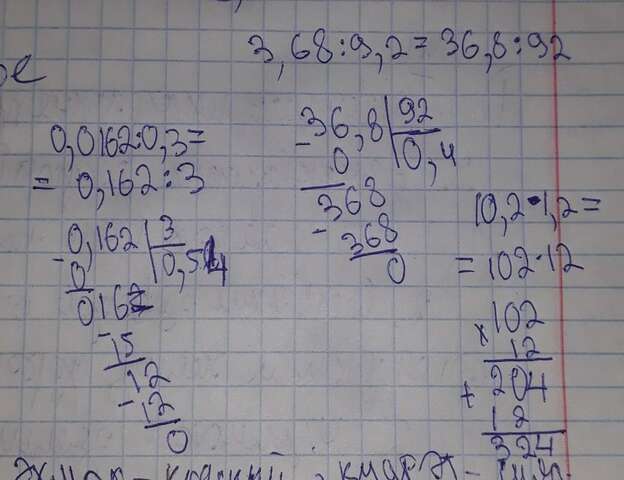 3,68:9,2=36,8:92
ое
0,0162:0,3=
= 0,162:3
-0,162 3
0 0,54
0162
-15
12
-12
0
-36,8 92
0 0,4
368
-368
0
10,2·1,2=
= 102·12
×102
12
+204
12
324